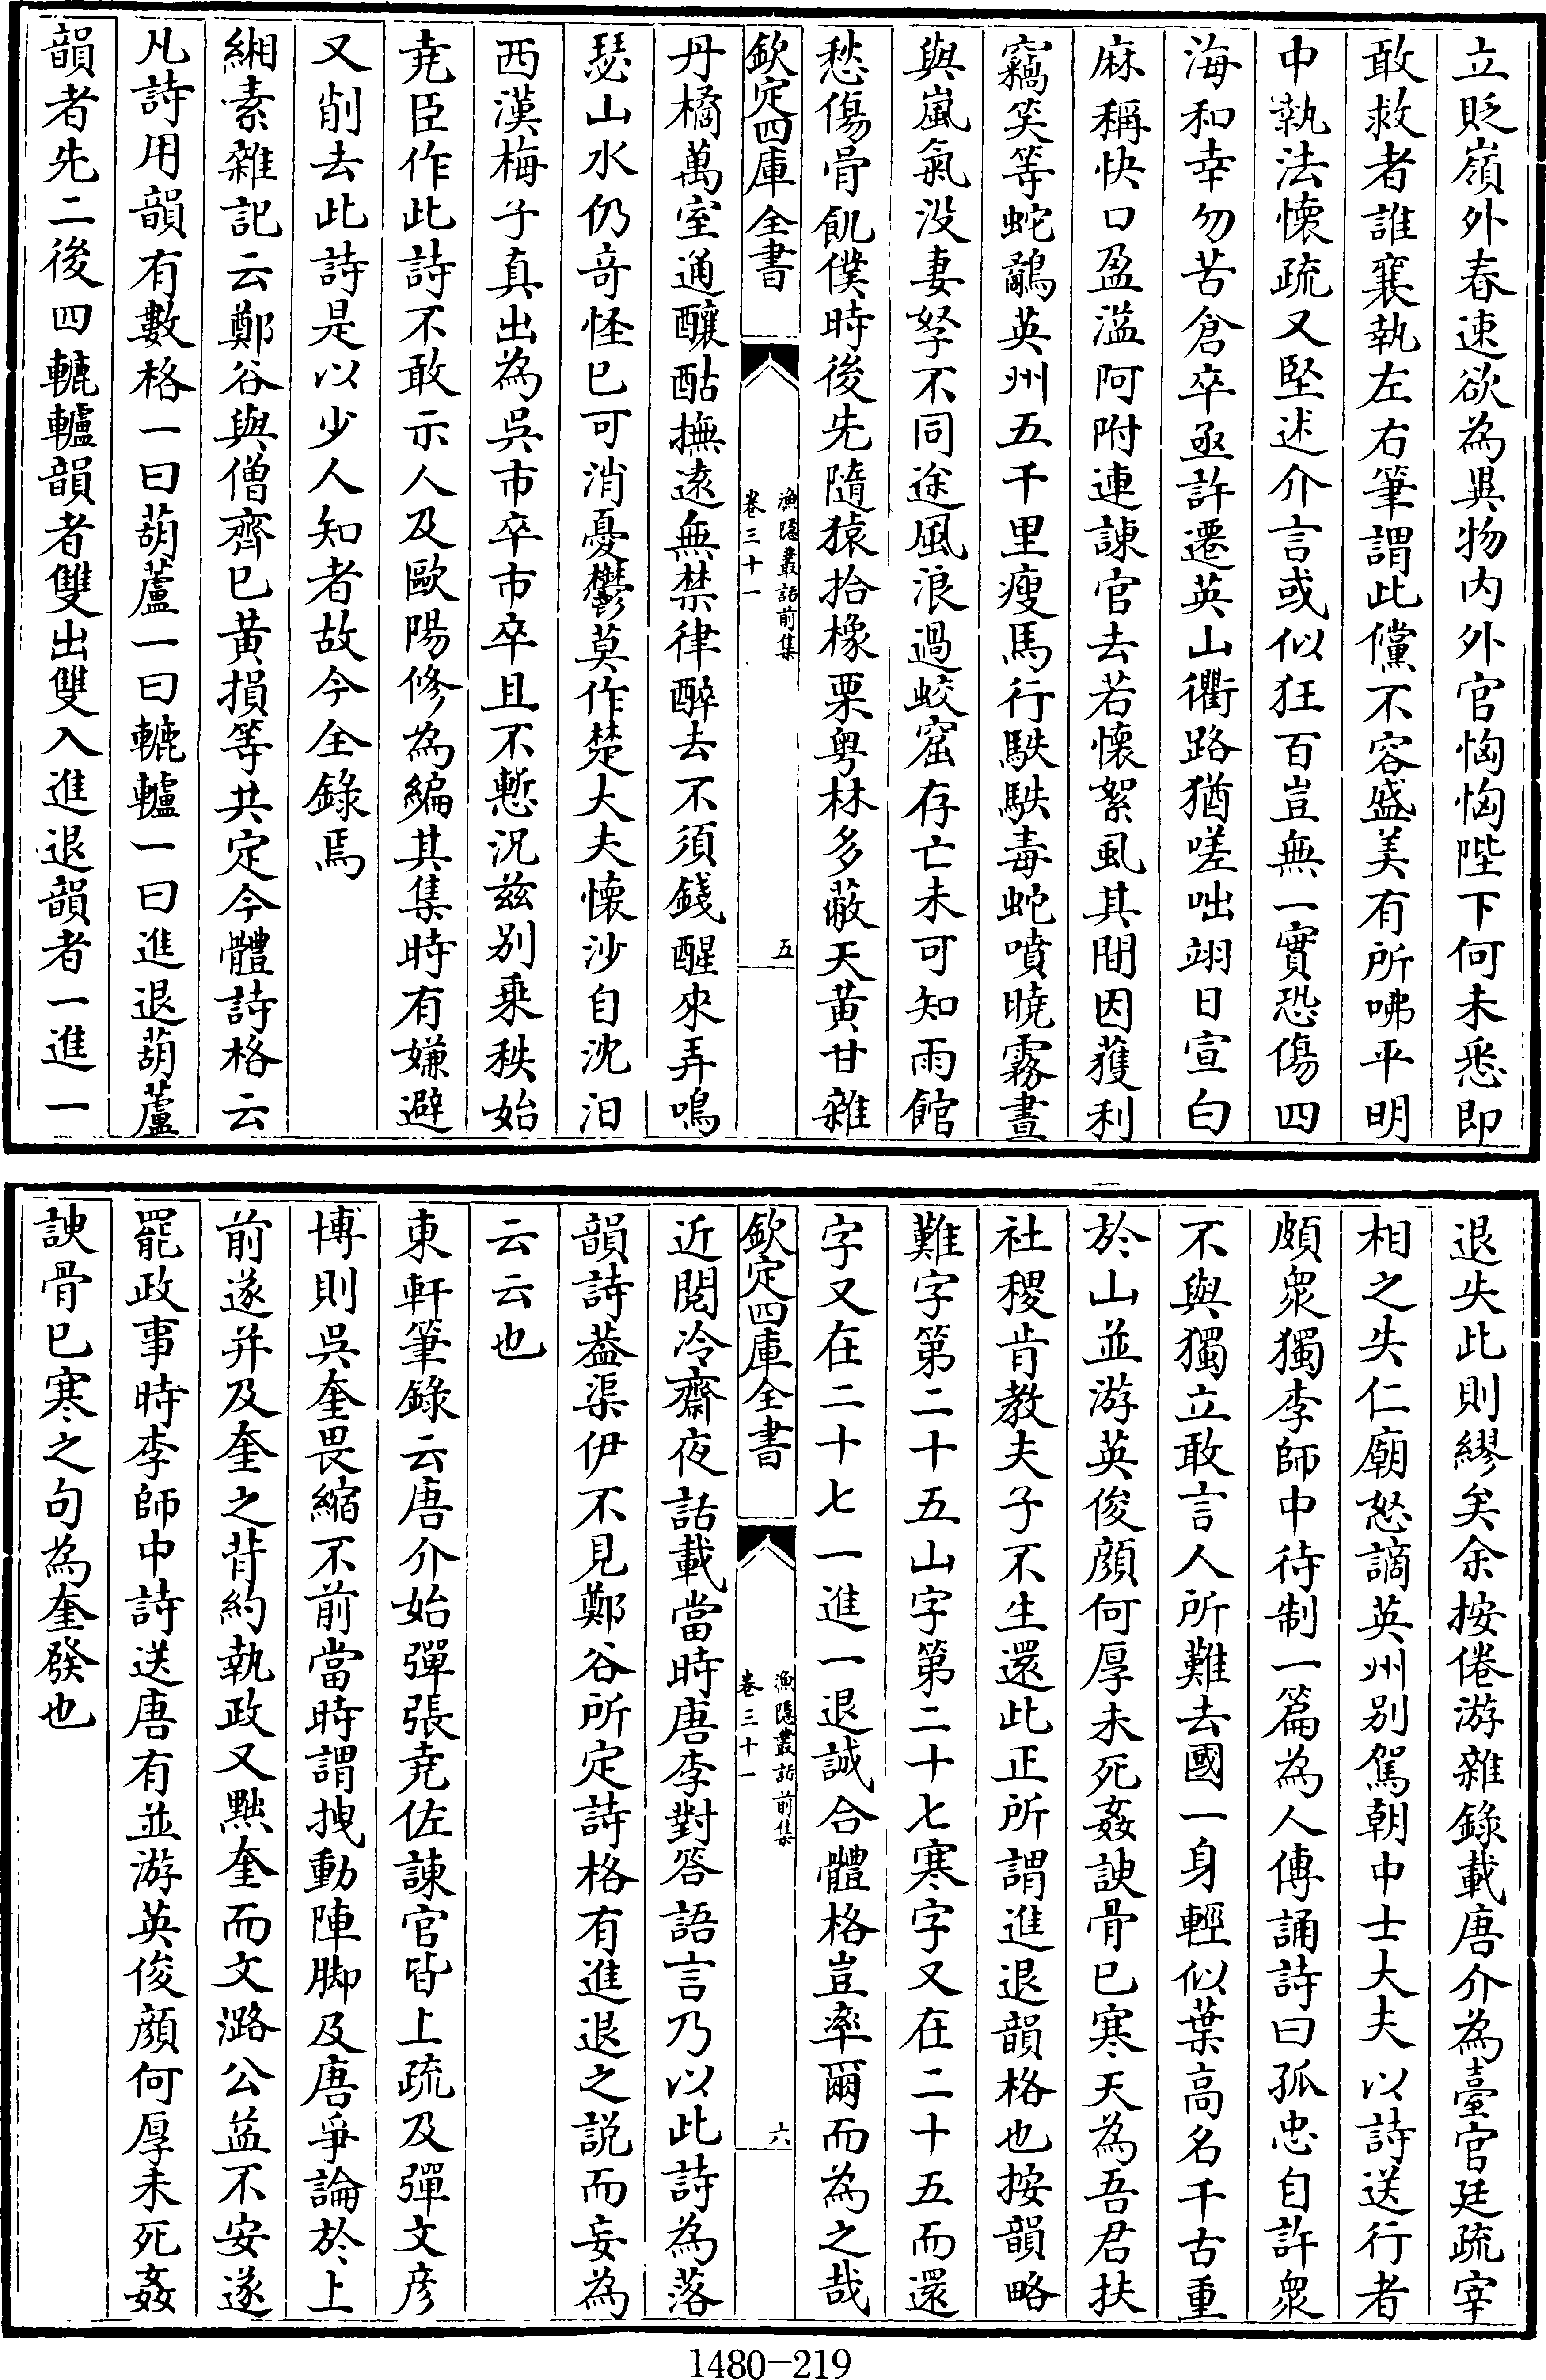 立貶嶺外春速欲為異物内外官恟恟陛下何未悉即
敢救者誰襄執左右筆謂此儻不容盛美有所咈平明
中執法懷疏又堅述介言或似狂百豈無一實恐傷四
海和幸勿苦倉卒亟許遷英山衢路猶嗟咄翊日宣白
麻稱快口盈溢阿附連諫官去若懷絮虱其間因獲利
竊笑等蛇鷸英州五千里瘦馬行駃駃毒蛇噴曉霧晝
與嵐氣没妻孥不同途風浪過蛟窟存亡未可知雨館
愁傷骨飢僕時後先隨猿拾橡栗粤林多蔽天黄甘雜
欽定四庫全書
漁隱叢話前集
卷三十一
五
丹橘萬室通釀酤撫遠無禁律醉去不須錢醒來弄鳴
瑟山水仍竒怪已可消憂鬱莫作楚大夫懷沙自沈汨
西漢梅子真出為吳市卒市卒且不慙況兹别乘秩始
堯臣作此詩不敢示人及歐陽修為編其集時有嫌避
又削去此詩是以少人知者故今全錄焉
緗素雜記云鄭谷與僧齊已黄損等共定今體詩格云
凡詩用韻有數格一曰葫蘆一曰轆轤一曰進退葫蘆
韻者先二後四轆轤韻者雙出雙入進退韻者一進一
退失此則繆矣余按倦游雜錄載唐介為臺官廷疏宰
相之失仁廟怒謫英州别駕朝中士大夫以詩送行者
頗衆獨李師中待制一篇為人傳誦詩曰孤忠自許衆
不與獨立敢言人所難去國一身輕似葉高名千古重
於山並游英俊顔何厚未死姦諛骨已寒天為吾君扶
社稷肯教夫子不生還此正所謂進退韻格也按韻略
難字第二十五山字第二十七寒字又在二十五而還
字又在二十七一進一退誠合體格豈率爾而為之哉
欽定四庫全書
漁隱叢話前集
卷三十一
六
近閲冷齋夜話載當時唐李對答語言乃以此詩為落
韻詩葢渠伊不見鄭谷所定詩格有進退之説而妄為
云云也
東軒筆錄云唐介始彈張堯佐諫官皆上疏及彈文彦
博則吳奎畏縮不前當時謂拽動陣脚及唐爭論於上
前遂并及奎之背約執政又黜奎而文潞公益不安遂
罷政事時李師中詩送唐有並游英俊顔何厚未死姦
諛骨已寒之句為奎發也
1480-219